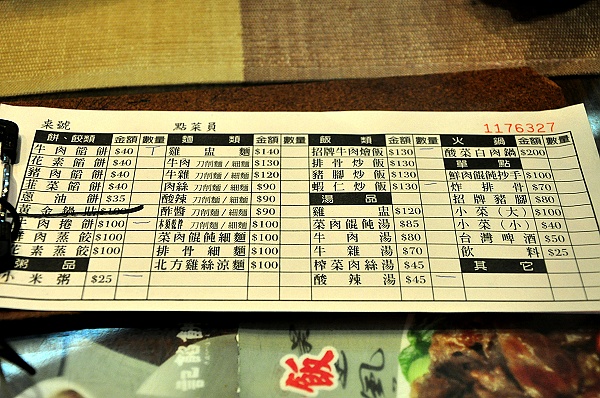 桌號 點菜員 1176327
餅、餃類 金額 數量 麵類 金額 數量 飯類 金額 數量 火鍋 金額 數量
牛肉餡餅 $40 一 雞盅麵 $140 招牌牛肉燴飯 $130 酸菜白肉鍋 $200 一
花素餡餅 $40 牛肉 刀削麵/細麵 $130 排骨炒飯 $130 單點
豬肉餡餅 $40 牛雜 刀削麵/細麵 $120 豬腳炒飯 $130 鮮肉餛飩抄手 $100
韮菜餡餅 $40 肉絲 刀削麵/細麵 $90 蝦仁炒飯 $130 炸排骨 $70
蔥油餅 $35 酸辣 刀削麵/細麵 $90 湯品 招牌豬腳 $80
黃金鍋貼 $100 酢醬 刀削麵/細麵 $90 雞盅 $120 小菜(大) $100
牛肉捲餅 $100 一 刀削麵/細麵 $100 菜肉餛飩湯 $85 小菜(小) $40
牛肉蒸餃 $100 菜肉餛飩細麵 $100 牛肉湯 $80 台灣啤酒 $50
花素蒸餃 $100 排骨細麵 $100 牛雜湯 $70 飲料 $25
粥品 北方雞絲涼麵 $100 榨菜肉絲湯 $45 其它
小米粥 $25 一 酸辣湯 $45 一
飯